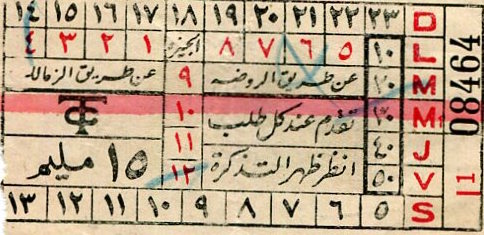 D ٢٣ ٢٢ ٢١ ٢٠ ١٩ ١٨ ١٧ ١٦ ١٥ ١٤
L ١٠ ٥ ٦ ٧ ٨ الجيزة ١ ٢ ٣ ٤
M ٢٠ عن طريق الروضه ٩ عن طريق الزمالك
M ٣٠ تقدم عند كل طلب ١٠ TC
J ٤٠ ١١
V ٥٠ انظر ظهر التذكرة ١٢ ١٥ مليم
S ٥ ٦ ٧ ٨ ٩ ١٠ ١١ ١٢ ١٣
08464
1